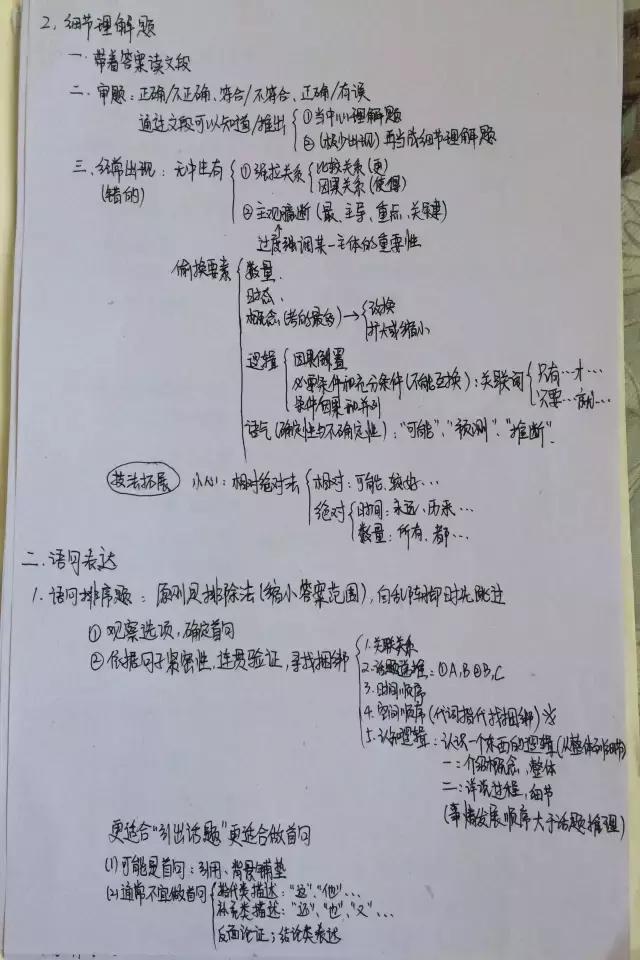 2、细节理解题
一、带着答案读文段
二、审题：正确/不正确、符合/不符合、正确/有误
通过文段可以知道/推出
①当中心理解题
②(极少出现)再当成细节理解题
三、经常出现：无中生有
(错的)
①强拉关系
比较关系(更)
因果关系(使得)
②主观臆断(最、主导、重点、关键)
过度强调某一主体的重要性
偷换要素
数量、
时态、
概念(考的最多)→
改换
扩大或缩小
逻辑
因果倒置
必要条件和充分条件(不能互换)：关联词
只有…才…
只要…就…
条件/因果和并列
语气(确定性与不确定性)："可能"、"预测"、"推断"
技法拓展 小心：相对绝对法
相对：可能、较好…
绝对
时间：永远、历来…
数量：所有、都…
二、语句表达
1、语句排序题：原则是排除法(缩小答案范围)，向乱阵脚时先跳过
①观察选项，确定首句
②依据句子紧密性，连贯验证，寻找捆绑
1.关联关系
2.话题递推：①A,B②B,C
3.时间顺序
4.空间顺序(代词指代找捆绑)※
5.认知逻辑：认识一个东西的逻辑(从整体到细节)
一：介绍概念，整体
二：详说过程，细节
(事情发展顺序大于话题推理)
更适合"引出话题"更适合做首句
(1)可能是首句：引用、背景铺垫
(2)通常不宜做首句
指代类描述："这"、"他"…
补充类描述："还"、"也"、"又"…
反面论证；结论类表达